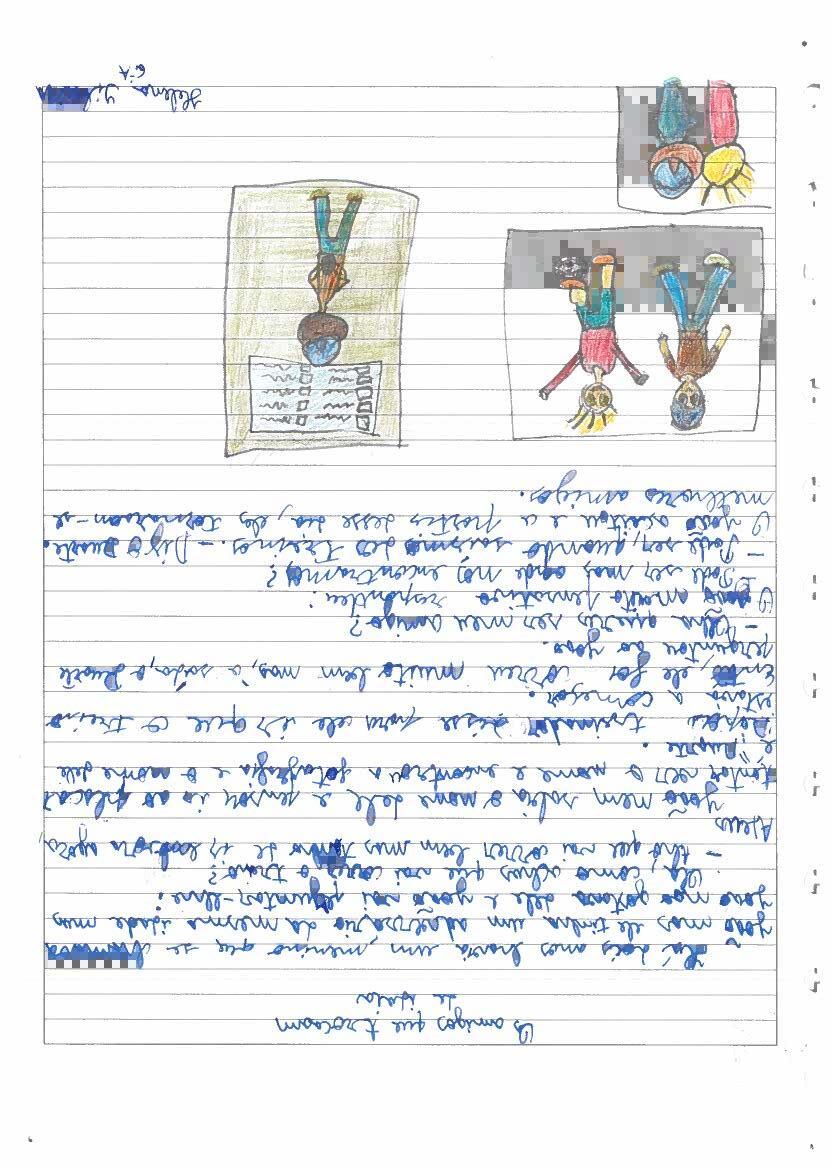 Os amigos que trocaam
de ideia
Há dois anos havia um menino que se chamava
João mas ele tinha um adversário da mesma idade mas
João não gostava dele e João vai perguntar-lhe:
Olá, como achas que vai correr o treino?
- Acho que vai correr bem mas tenho de ir embora agora
Adeus
João nem sabia o nome dele e pensou e ia ao placar
tentar ver o nome e encontrou a fotografia e o nome dele
é "Duarte".
depois treinador disse para ele ir que o treino
estava a começar.
Então, ele foi correu muito bem mas, à saída, o Duarte
perguntou ao João.
- Olha queres ser meu amigo?
O João muito pensativo respondeu:
- Pode ser, mas onde nos encontramos?
- Pode ser, quando sairmos dos treinos. - Disse Duarte.
O João aceitou e a partir desse dia, eles tornaram-se
melhores amigos.
Helena
6ºA